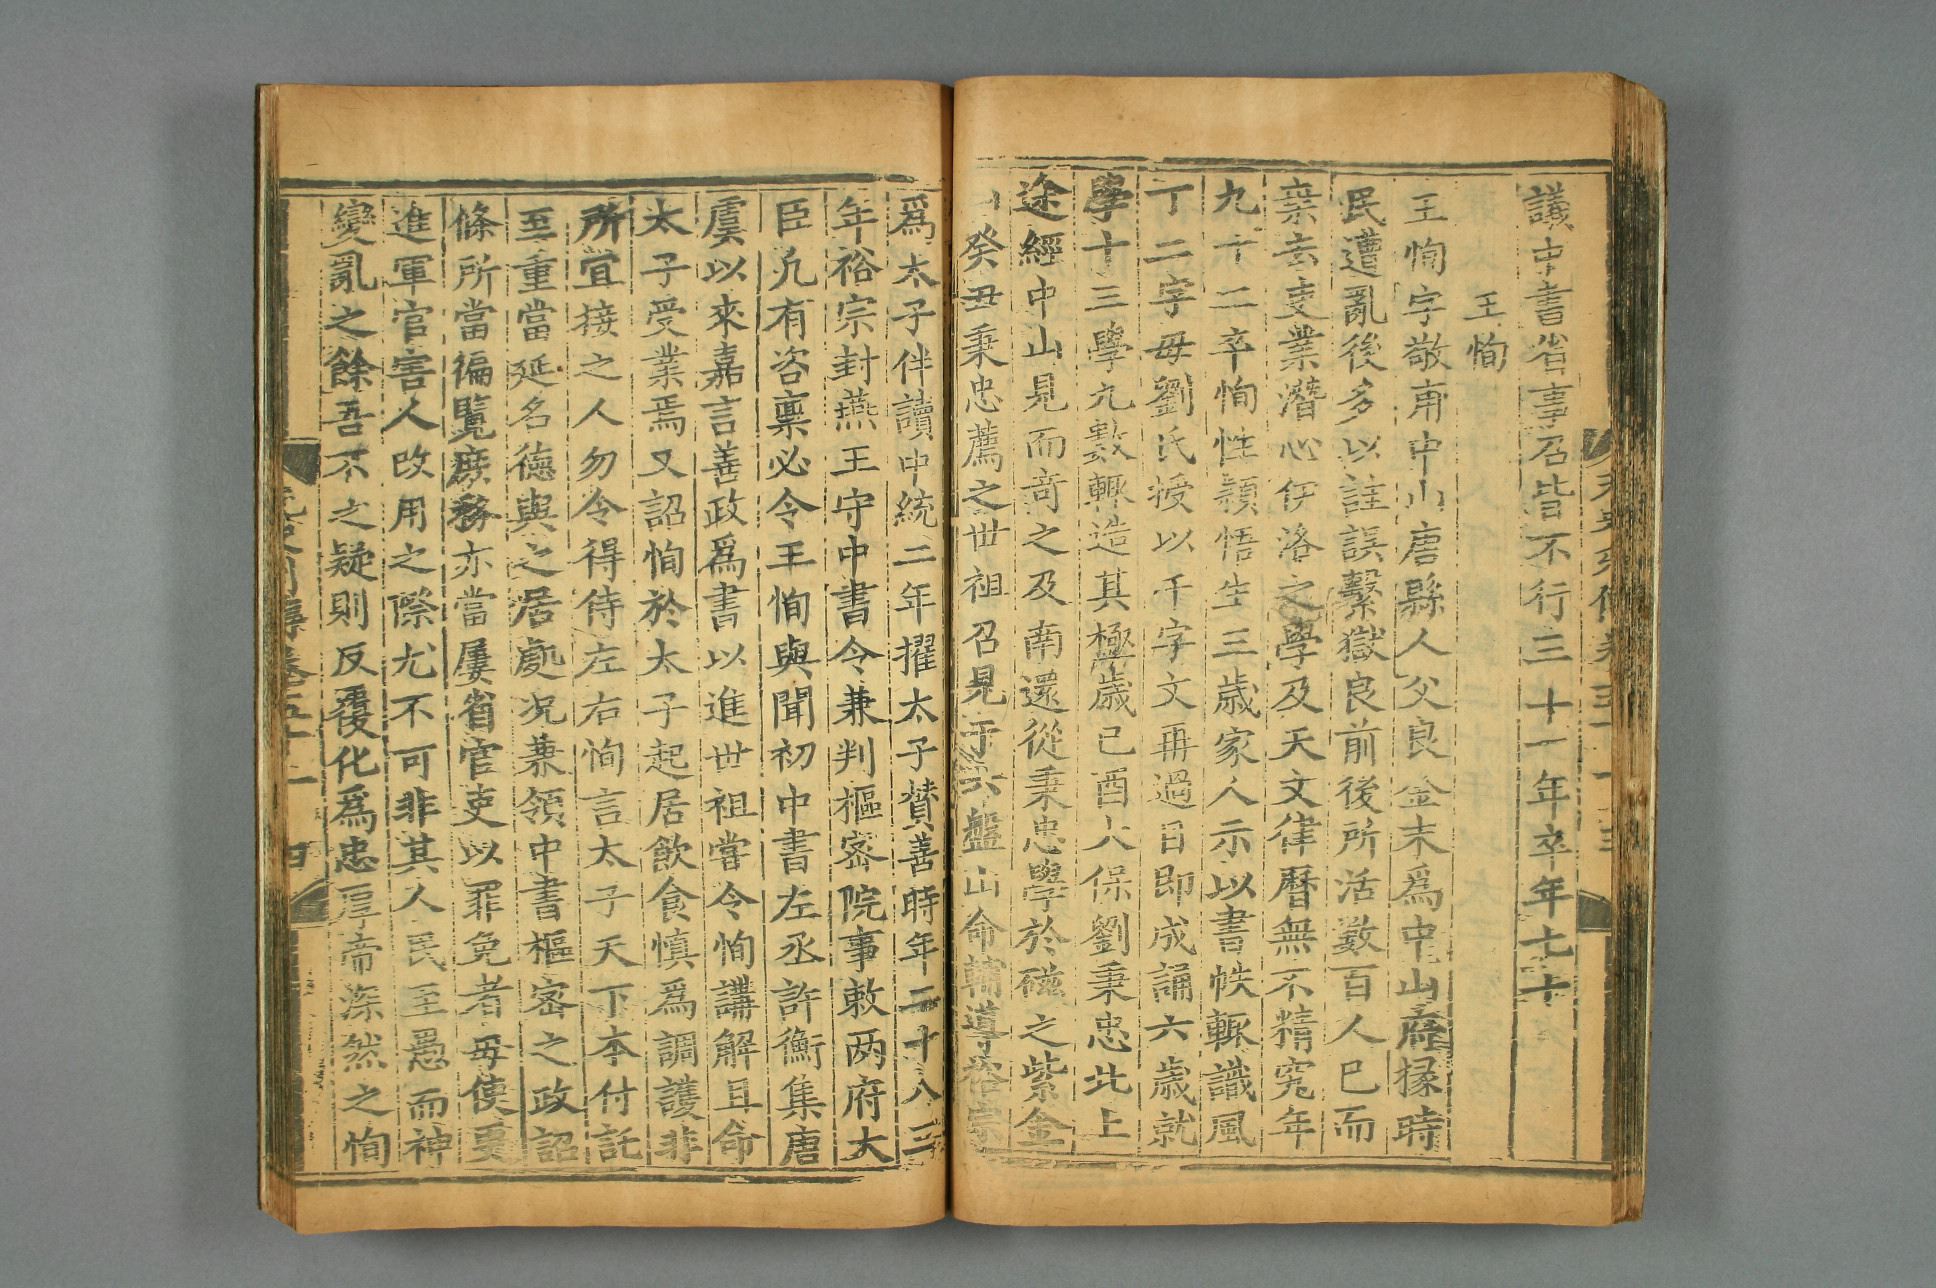 議中書省事召皆不行三十一年卒年七十
王恂
王恂字敬甫中山唐縣人父良金末爲中山府掾時
民遭亂後多以詿誤繫獄良前後所活數百人巳而
棄去吏業潛心伊洛之學及天文律曆無不精究年
九十二卒恂性穎悟生三歲家人示以書帙輒識風
丁二字母劉氏授以千字文再過目即成誦六歲就
學十三學九數輒造其極歲己酉太保劉秉忠北上
途經中山見而竒之及南還從秉忠學於磁之紫金
山癸丑秉忠薦之世祖召見于六盤山命輔導裕宗
爲太子伴讀中統二年擢太子賛善時年二十八三
年裕宗封燕王守中書令兼判樞密院事敕两府大
臣凢有咨禀必令王恂與聞初中書左丞許衡集唐
虞以來嘉言善政爲書以進世祖嘗令恂講解且命
太子受業焉又詔恂於太子起居飲食慎爲調護非
所宜接之人勿令得侍左右恂言太子天下本付託
至重當延名德與之居處况兼領中書樞密之政詔
條所當徧覽庶務亦當屢省官吏以罪免者毋使更
進軍官害人改用之際尤不可非其人民至愚而神
變亂之餘吾不之疑則反覆化爲忠厚帝深然之恂
元史列傳卷五十一 四